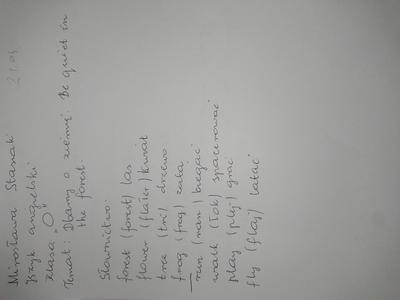 21.04
Mirosława Stasiak
Język angielski
klasa "0"
Temat: Dbamy o ziemię. Be quiet in
the forest.
Słownictwo:
forest (forest) las
flower (flałer) kwiat
tree (tri) drzewo
frog (frog) żaba
run (ran) biegać
walk (łok) spacerować
play (plej) grać
fly (flaj) latać